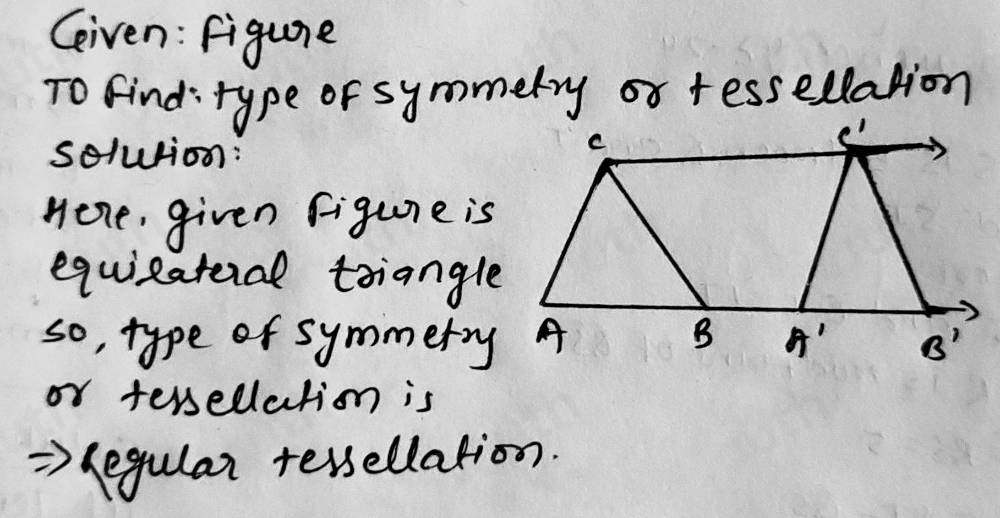 Given: Figure
TO Find: type of symmetry or tessellation
Solution:
Here, given figure is
equilateral triangle
so, type of symmetry
or tessellation is
=> Regular tessellation.
C C'
A B A' B'